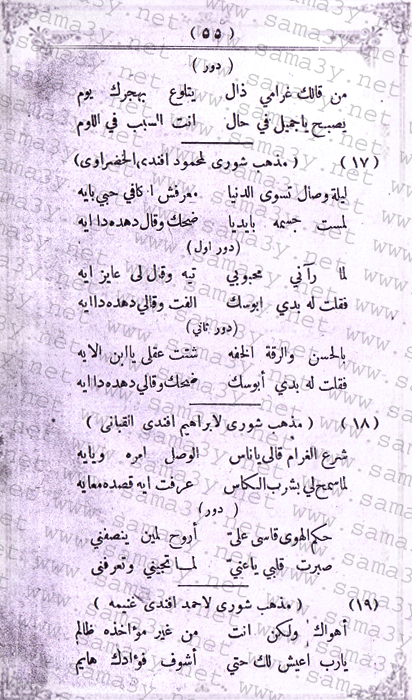 (٥٥)
(دور)
من قالك غرامي ذال يتلوع بهجرك يوم
يصبح ياجميل في حال انت السبب في اللوم
(١٧) (مذهب شورى لمحمود افندى الخضراوى)
ليلة وصال تسوى الدنيا معرفش اكافي حبي بايه
لمست جسمه بايديا ضحك وقال دهده دا ايه
(دور اول)
لما رآني محبوبي تيه وقال لى عايز ايه
فقلت له بدي ابوسك الفت وقالي دهده دا ايه
(دور ثاني)
بالحسن والرقة الخفه شتت عقلى يا ابن الايه
فقلت له بدي أبوسك ضحك وقالي دهده دا ايه
(١٨) (مذهب شورى لابراهيم افندى القباني)
شرع الغرام قالى ياناس الوصل امره ويايه
لما سمح لي بشرب الكاس عرفت ايه قصده معايه
(دور)
حكم الهوى قاسى علىّ أروح لمين ينصفني
صبرت قلبي ياعنيّ لما تجيني وتعرفنى
(١٩) (مذهب شورى لاحمد افندى غنيمه)
أهواك ولكن انت من غير مؤاخذه ظالم
يارب اعيش لك حتي أشوف فؤادك هايم
www.sama3y.net